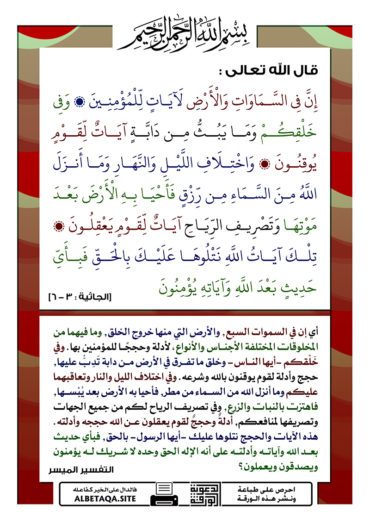 بسم الله الرحمن الرحيم
قال الله تعالى :
إِنَّ فِي السَّمَاوَاتِ وَالْأَرْضِ لَآيَاتٍ لِّلْمُؤْمِنِينَ ۞ وَفِي
خَلْقِكُمْ وَمَا يَبُثُّ مِن دَابَّةٍ آيَاتٌ لِّقَوْمٍ
يُوقِنُونَ ۞ وَاخْتِلَافِ اللَّيْلِ وَالنَّهَارِ وَمَا أَنزَلَ
اللَّهُ مِنَ السَّمَاءِ مِن رِّزْقٍ فَأَحْيَا بِهِ الْأَرْضَ بَعْدَ
مَوْتِهَا وَتَصْرِيفِ الرِّيَاحِ آيَاتٌ لِّقَوْمٍ يَعْقِلُونَ ۞
تِلْكَ آيَاتُ اللَّهِ نَتْلُوهَا عَلَيْكَ بِالْحَقِّ فَبِأَيِّ
حَدِيثٍ بَعْدَ اللَّهِ وَآيَاتِهِ يُؤْمِنُونَ
[الجاثية : ٣ - ٦]
أي إن في السموات السبع، والأرض التي منها خروج الخلق، وما فيهما من
المخلوقات المختلفة الأجناس والأنواع، لأدلة وحججًا للمؤمنين بها. وفي
خَلْقكم -أيها الناس- وخلق ما تفرق في الأرض من دابة تَدِبُّ عليها،
حجج وأدلة لقوم يوقنون بالله وشرعه. وفي اختلاف الليل والنار وتعاقبهما
عليكم وما أنزل الله من السماء من مطر، فأحيا به الأرض بعد يُبْسها،
فاهتزت بالنبات والزرع، وفي تصريف الرياح لكم من جميع الجهات
وتصريفها لمنافعكم، أدلةٌ وحججٌ لقوم يعقلون عن الله حججه وأدلته.
هذه الآيات والحجج نتلوها عليك -أيها الرسول- بالحق، فبأي حديث
بعد الله وآياته وأدلته على أنه الإله الحق وحده لا شريك له يؤمنون
ويصدقون ويعملون؟
التفسير الميسر
احرص على طباعة
ونشر هذه الورقة
الدعوية
الورقة
فالدال على الخير كفاعله
ALBETAQA.SITE